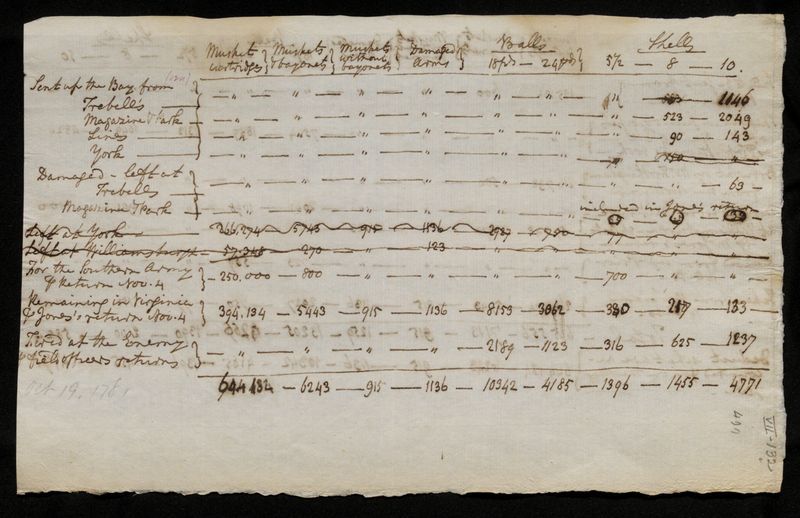 Balls Shells
Musket cartridges } Muskets & bayonets } Muskets without bayonets } Damaged Arms } 18 pds — 24 pds } 5½ — 8 — 10.
Sent up the Bay from
Trebells — " — " — " — " — " — " — — 1146
Magazine & Park — " — " — " — " — " — " — " — 523 — 2049
Lines — " — " — " — " — " — " — " — 90 — 143
York — " — " — " — " — " — "
Damaged – left at
Trebells — " — " — " — " — " — " — " — " — 63 —
Magazine & Park — " — " — " — " — " — " included in Jones return
Left at York — 366,274 — 5743 — 915 — 1136
Left at Williamsburgh — 270 — " — 123
For the Southern Army
& Return Nov. 4 } — 250,000 — 800 — " — " — " — " — 700 — " — "
Remaining in Virginia
& Jones's return Nov. 4 } 394,134 — 5443 — 915 — 1136 — 8153 — 3062 — 380 — 217 — 133 —
Fired at the Enemy
field officers returns } — " — " — " — " — 2189 — 1123 — 316 — 625 — 1237
644,134 — 6243 — 915 — 1136 — 10342 — 4185 — 1396 — 1455 — 4771
Oct 19, 1781
499
VII-132